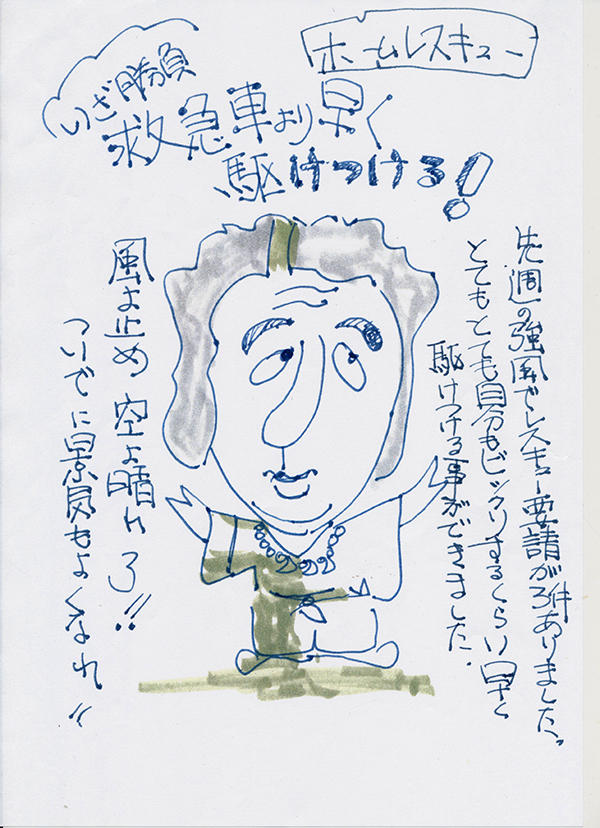 ホームレスキュー
いざ勝負
救急車より早く
駆けつける!
先週の強風でレスキュー要請が3件ありました。
とてもとても自分もビックリするくらい早く
駆けつける事ができました.
風よ止め 空よ晴れろ!!
ついでに景気もよくなれ!!